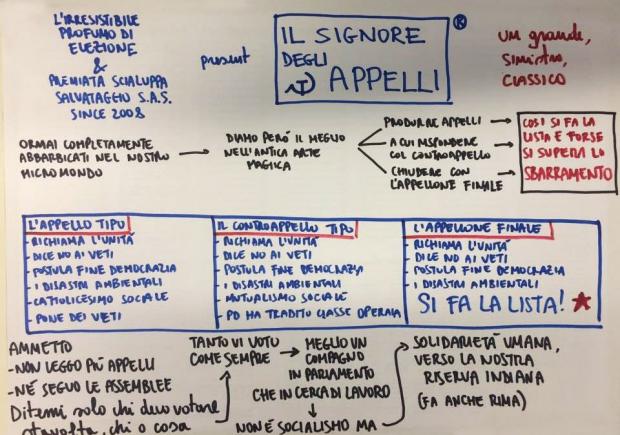 L'IRRESISTIBILE
PROFUMO DI
ELEZIONE
&
PREMIATA SCIALUPPA
SALVATAGGIO S.A.S.
SINCE 2008
present
IL SIGNORE
DEGLI
APPELLI
®
UM grande,
SIMISTRO,
CLASSICO
ORMAI COMPLETAMENTE
ABBARBICATI NEL NOSTRO
MICROMONDO
DIAMO PERÓ IL MEGLIO
NELL'ANTICA ARTE
MAGICA
PRODURRE APPELLI
A CUI RISPONDERE
COL CONTROAPPELLO
CHIUDERE CON
L'APPELLONE FINALE
COSÌ SI FA LA
LISTA E FORSE
SI SUPERA LO
SBARRAMENTO
L'APPELLO TIPO
- RICHIAMA L'UNITÀ
- DICE NO AI VETI
- POSTULA FINE DEMOCRAZIA
- I DISASTRI AMBIENTALI
- CATTOLICESIMO SOCIALE
- PONE DEI VETI
IL CONTROAPPELLO TIPO
- RICHIAMA L'UNITÀ
- DICE NO AI VETI
- POSTULA FINE DEMOCRAZIA
- I DISASTRI AMBIENTALI
- MUTUALISMO SOCIALE
- PD HA TRADITO CLASSE OPERAIA
L'APPELLONE FINALE
- RICHIAMA L'UNITÀ
- DICE NO AI VETI
- POSTULA FINE DEMOCRAZIA
- I DISASTRI AMBIENTALI
SI FA LA LISTA!
AMMETTO
- NON LEGGO PIÚ APPELLI
- NÉ SEGUO LE ASSEMBLEE
Ditemi solo chi devo votare
stavolta, chi o cosa
TANTO VI VOTO
COME SEMPRE
MEGLIO UN
COMPAGNO
IN PARLAMENTO
CHE IN CERCA DI LAVORO
NON È SOCIALISMO MA
SOLIDARIETÀ UMANA,
VERSO LA NOSTRA
RISERVA INDIANA
(FA ANCHE RIMA)